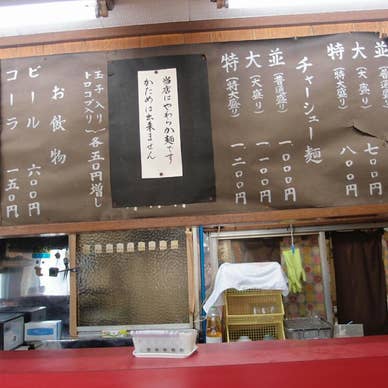 並 (普通盛り)
大 (大盛り) 七00円
特 (特大盛り) 八00円
チャーシュー麺
並 (普通盛り) 一000円
大 (大盛り) 一一00円
特 (特大盛り) 一二00円
当店はやわらか麺です
かためは出来ません
玉子入り
トロロコブ入り
各五0円増し
お飲物
ビール 六00円
コーラ 一五0円